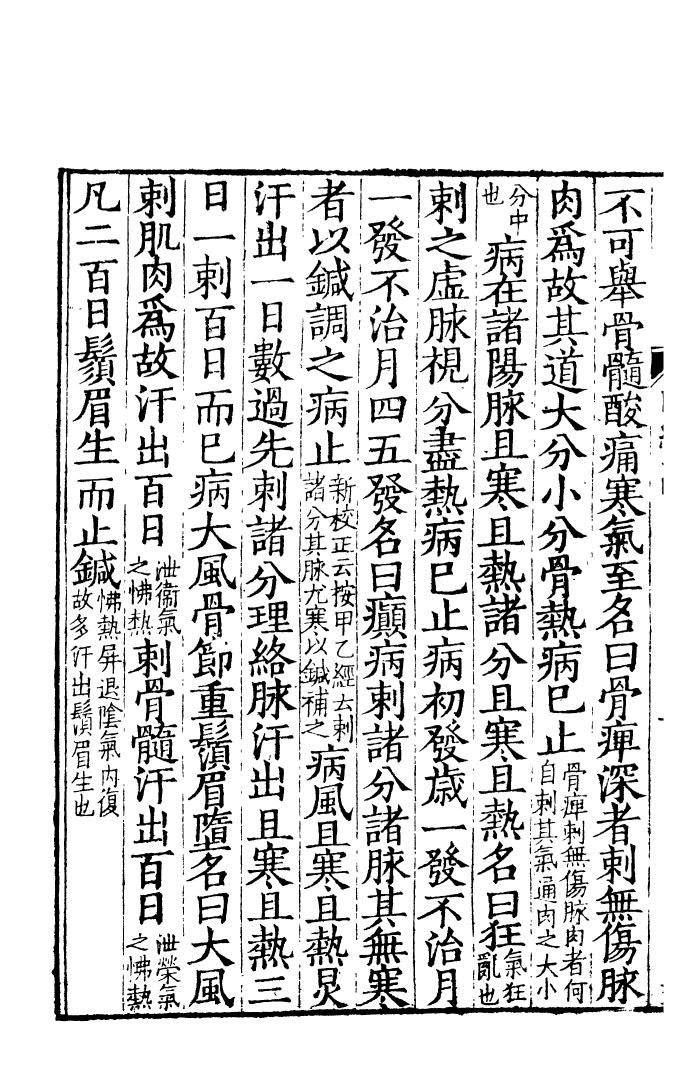 不可舉骨髓酸痛寒氣至名曰骨痺深者刺無傷脉
肉爲故其道大分小分骨熱病已止骨痺刺無傷脉肉者何自刺其氣通肉之大小
分中也病在諸陽脉且寒且熱諸分且寒且熱名曰狂氣狂亂也
刺之虛脉視分盡熱病已止病初發歲一發不治月
一發不治月四五發名曰癲病刺諸分諸脉其無寒
者以鍼調之病止新校正云按甲乙經云刺諸分其脉尤寒以鍼補之病風且寒且熱炅
汗出一日數過先刺諸分理絡脉汗出且寒且熱三
日一刺百日而已病大風骨節重鬚眉墮名曰大風
刺肌肉爲故汗出百日泄衞氣之怫熱刺骨髓汗出百日泄榮氣之怫熱
凡二百日鬚眉生而止鍼怫熱屏退陰氣内復故多汗出鬚眉生也